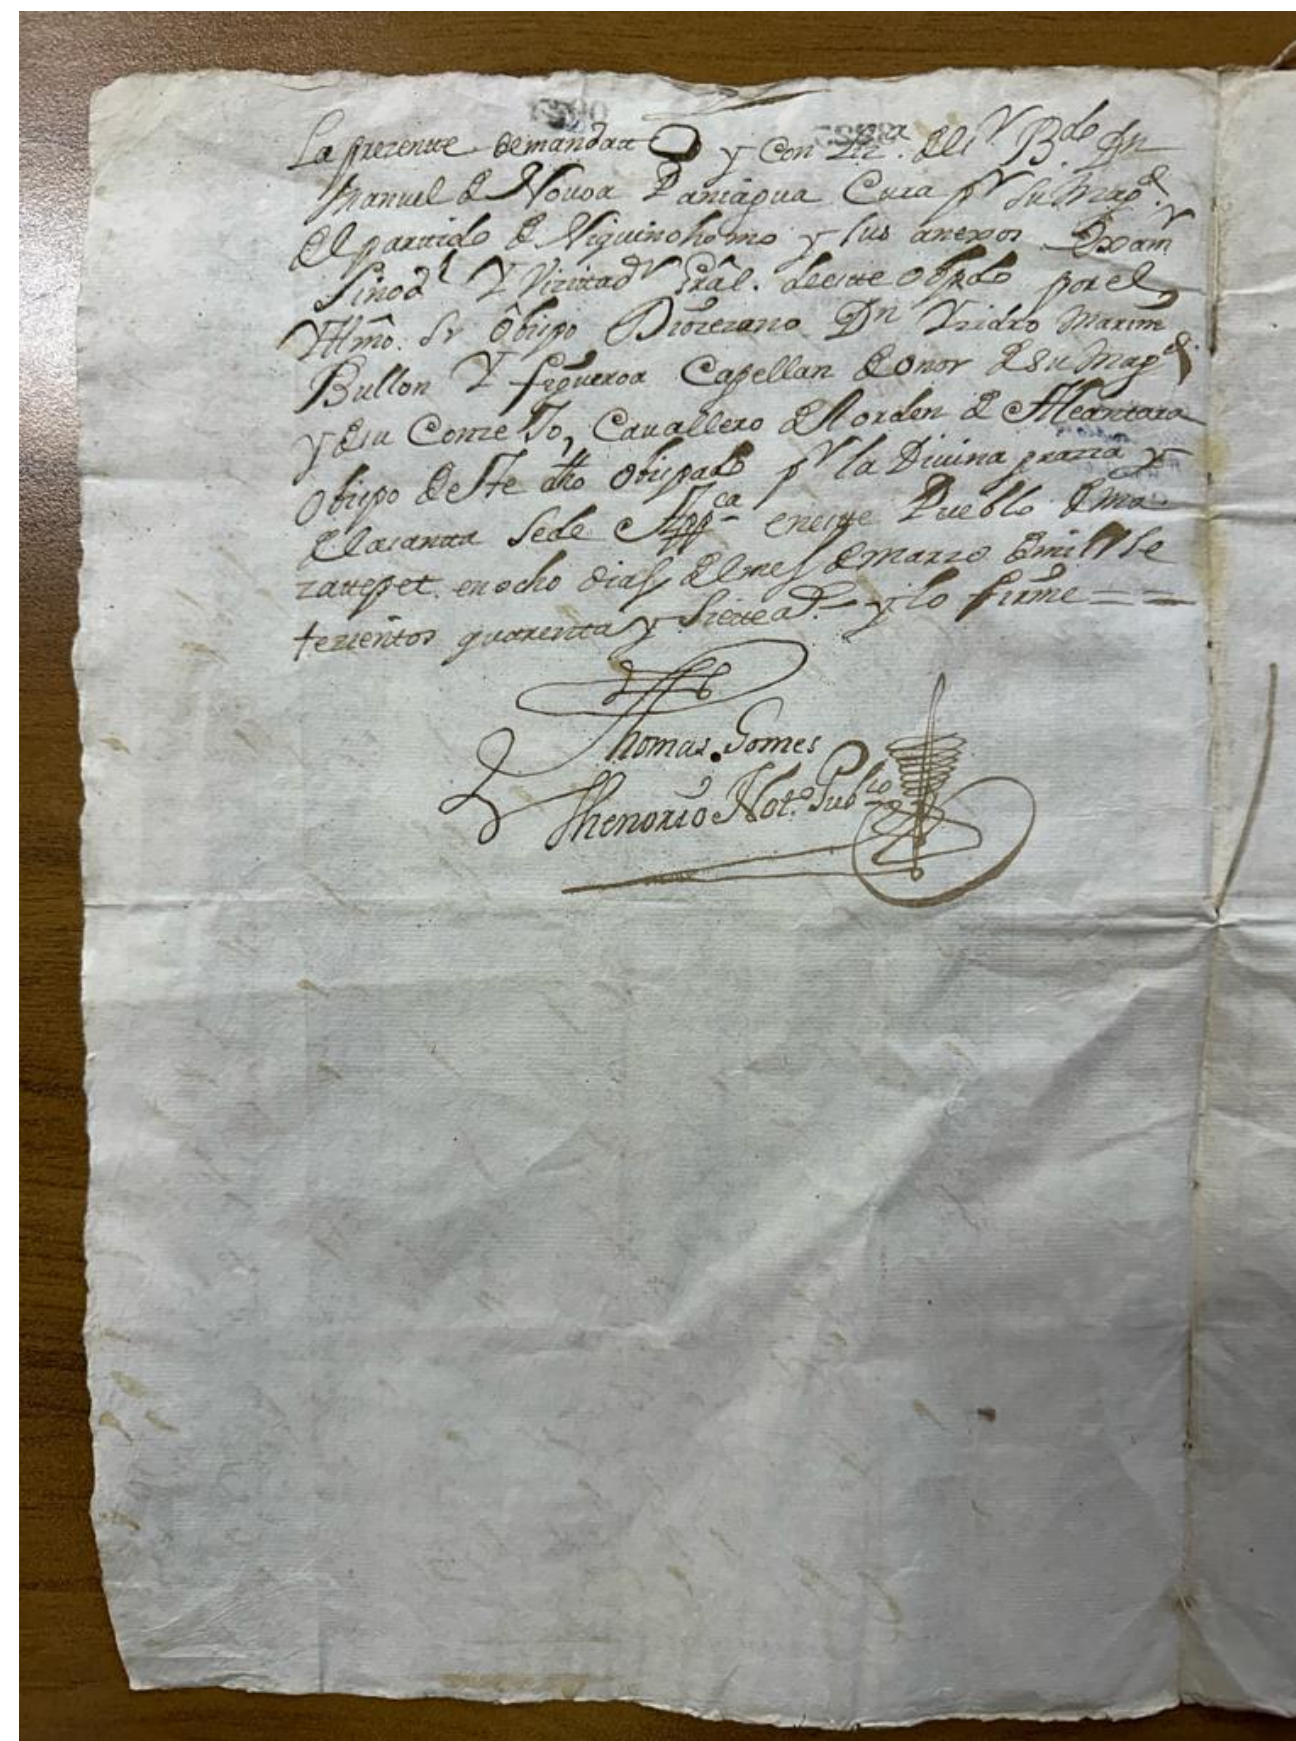 La prezente demanda y con Liz.ª del S.r B.do Dn
Manuel de Novoa Paniagua Cura p.r Su Mag.d
del partido de Niquinohomo y sus anexos Exam.r
Sinod.l Y Vizitad.r Grâl. deeste Obpdo por el
Yllmô. Sr Ôbispo Diozezano Dn Yzidro Marin
Bullon Y figueroa Capellan de onor de su Mag.d
y de su Conzejo, Cavallero del orden de Alcantara
Obispo deste dho Obispado p.r la Divina grazia y
de la santa Sede App.ca eneste Pueblo de ma-
zatepet. en ocho dias del mes de marzo de mil Se
tezientos quarenta y Siete a.s y lo firme = =
Thomas Gomes
Thenorio Not.o Pub.co